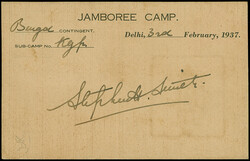 JAMBOREE CAMP.
Bengal CONTINGENT.
Delhi, 3rd February, 1937.
SUB-CAMP No. Kgp
Stephen H. Smith